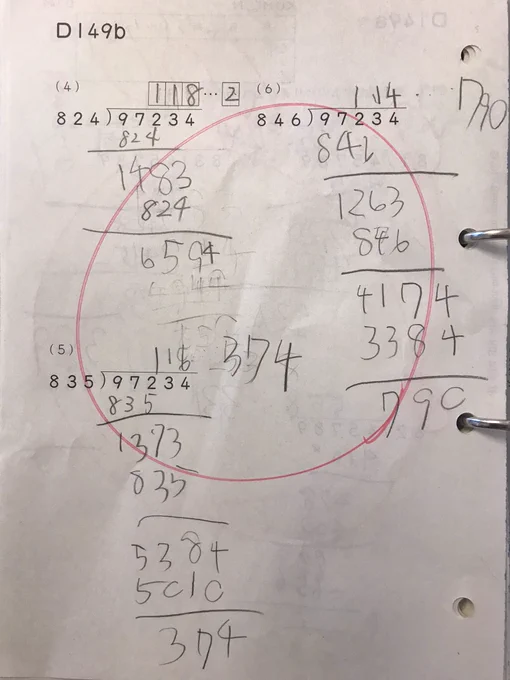 D149b
(4)
118...2
824)97234
824
1483
824
6594
(5)
116 374
835)97234
835
1373
835
5384
5010
374
(6)
114 ... 790
846)97234
846
1263
846
4174
3384
790